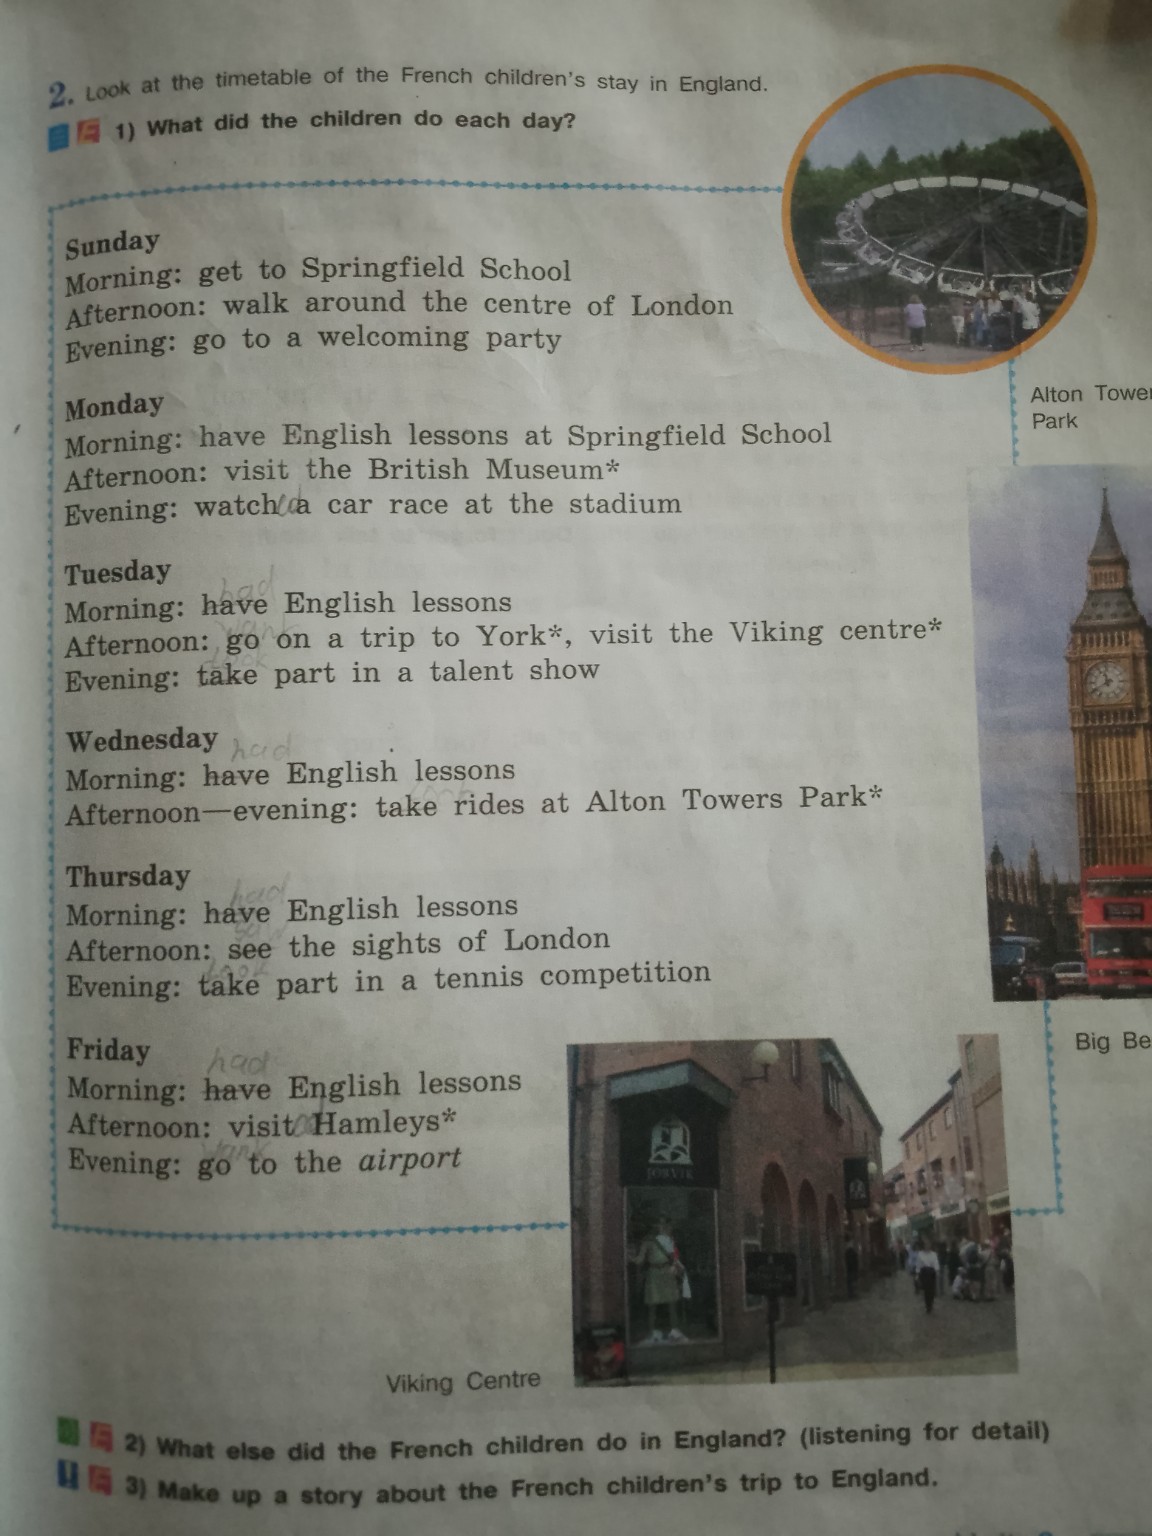 2. Look at the timetable of the French children's stay in England.
1) What did the children do each day?
Sunday
Morning: get to Springfield School
Afternoon: walk around the centre of London
Evening: go to a welcoming party
Alton Tower
Park
Monday
Morning: have English lessons at Springfield School
Afternoon: visit the British Museum*
Evening: watched a car race at the stadium
Tuesday
had
Morning: have English lessons
want
Afternoon: go on a trip to York*, visit the Viking centre*
took
Evening: take part in a talent show
Wednesday
had
Morning: have English lessons
took
Afternoon—evening: take rides at Alton Towers Park*
Thursday
had
Morning: have English lessons
Afternoon: see the sights of London
took
Evening: take part in a tennis competition
Big Be
Friday
had
Morning: have English lessons
Afternoon: visit Hamleys*
want
Evening: go to the airport
JORVIK
Viking Centre
2) What else did the French children do in England? (listening for detail)
3) Make up a story about the French children's trip to England.